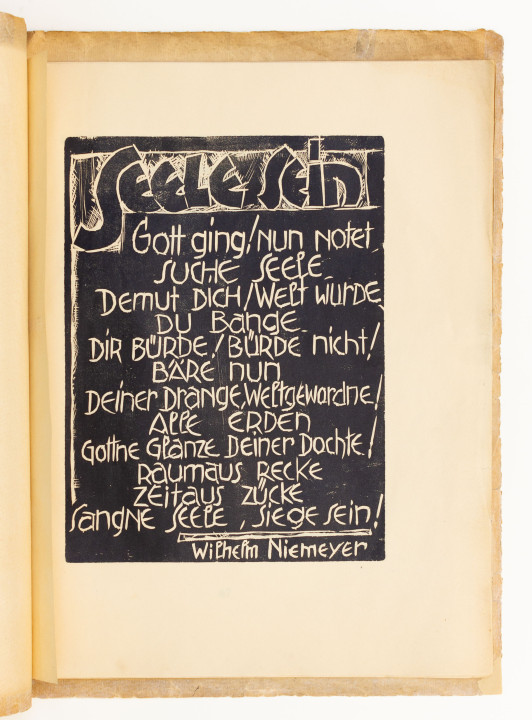 SEELE SEin
Gott ging! nun notet
SUCHE SEELE
Demut DICH! Welt wurde
DU Bange
DIR BÜRDE! BÜRDE nicht!
BÄRE nun
Deiner Drange, Weltgewordne!
Alle ERDEN
Gottne Glänze Deiner Dochte!
RAUMAUS RECKE
ZEITAUS ZÜCKE
SANGNE SEELE, SIEGE SEIN!
Wilhelm Niemeyer